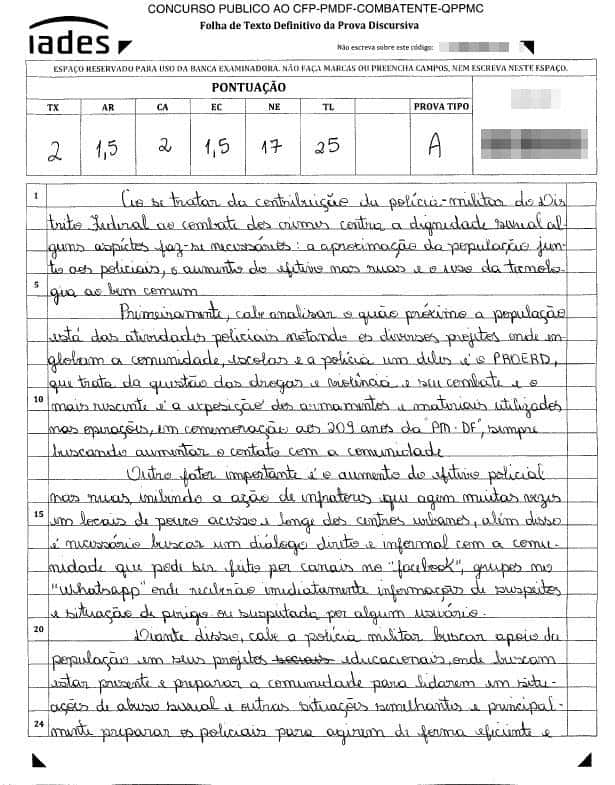 CONCURSO PUBLICO AO CFP-PMDF-COMBATENTE-QPPMC
Folha de Texto Definitivo da Prova Discursiva
iades
Não escreva sobre este código:
ESPAÇO RESERVADO PARA USO DA BANCA EXAMINADORA. NÃO FAÇA MARCAS OU PREENCHA CAMPOS, NEM ESCREVA NESTE ESPAÇO.
PONTUAÇÃO
TX AR CA EC NE TL PROVA TIPO
2 1,5 2 1,5 17 25 A
1 Ao se tratar da contribuição da polícia-militar do Dis
trito Federal ao combate dos crimes contra a dignidade sexual al
guns aspéctos faz-se necessários: a aproximação da população jun-
to aos policiais, o aumento do efetivo nas ruas e o uso da tecnolo-
5 gia ao bem comum
Primeiramente, cabe analisar o quão próximo a população
está das atividades policiais notando os diversos projetos onde en-
globam a comunidade, escolas e a polícia um deles é o PROERD,
que trata da questão das drogas e violência e seu combate e o
10 mais recente é a exposição dos armamentos e materiais utilizados
nas operações, em comemoração aos 209 anos da "PM-DF", sempre
buscando aumentar o contato com a comunidade.
Outro fator importante é o aumento do efetivo policial
nas ruas, inibindo a ação de infratores que agem muitas vezes
15 em locais de pouco acesso e longe dos centros urbanos, além disso
é necessário buscar um diálogo direto e informal com a comu-
nidade que pode ser feito por canais no "facebook", grupos no
"Whatsapp" onde receberão imediatamente informações de suspeitos
e situação de perigo ou suspeitada por algum usuário.
20 Diante disso, cabe a polícia militar buscar apoio da
população em seus projetos sociais educacionais, onde buscam
estar presente e preparar a comunidade para lidarem em situ-
ações de abuso sexual e outras situações semelhantes e principal-
24 mente preparar os policiais para agirem de forma eficiente e